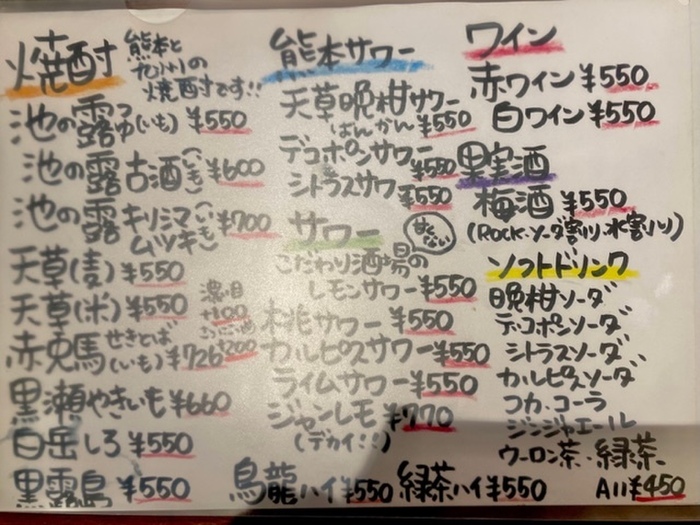 焼酎
熊本と
九州の
焼酎です!!
池の露 つゆ(いも) ¥550
池の露 古酒(いも) ¥600
池の露 キリシマ
ムツキ(いも) ¥700
天草(麦) ¥550
天草(米) ¥550
濃い目
+100
+200
赤兎馬 せきとば(いも) ¥726
黒瀬やきいも ¥660
白岳しろ ¥550
黒霧島 ¥550
熊本サワー
天草晩柑サワー
ばんかん ¥550
デコポンサワー ¥550
シトラスサワー ¥550
サワー
甘くない
こだわり酒場の
レモンサワー ¥550
桃サワー ¥550
カルピスサワー ¥550
ライムサワー ¥550
ジャンレモ ¥770
(デカイ!!)
烏龍ハイ ¥550 緑茶ハイ ¥550
ワイン
赤ワイン ¥550
白ワイン ¥550
果実酒
梅酒 ¥550
(ROCK・ソーダ割り・水割り)
ソフトドリンク
晩柑ソーダ
デコポンソーダ
シトラスソーダ
カルピスソーダ
コカ・コーラ
ジンジャエール
ウーロン茶・緑茶
All ¥450